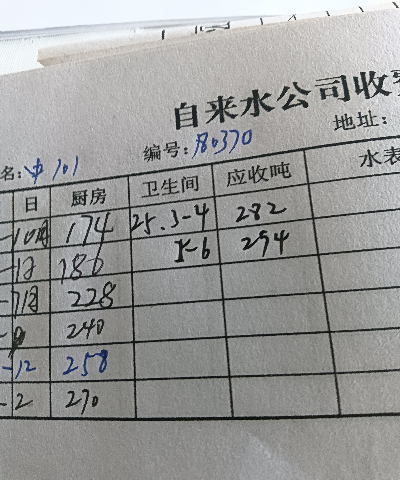 自来水公司收
名: 中101 编号: 80370 地址:
日 厨房 卫生间 应收吨 水表
-10月 174 25.3-4 282
-1月 186 5-6 294
-7月 228
240
-12 258
-2 270